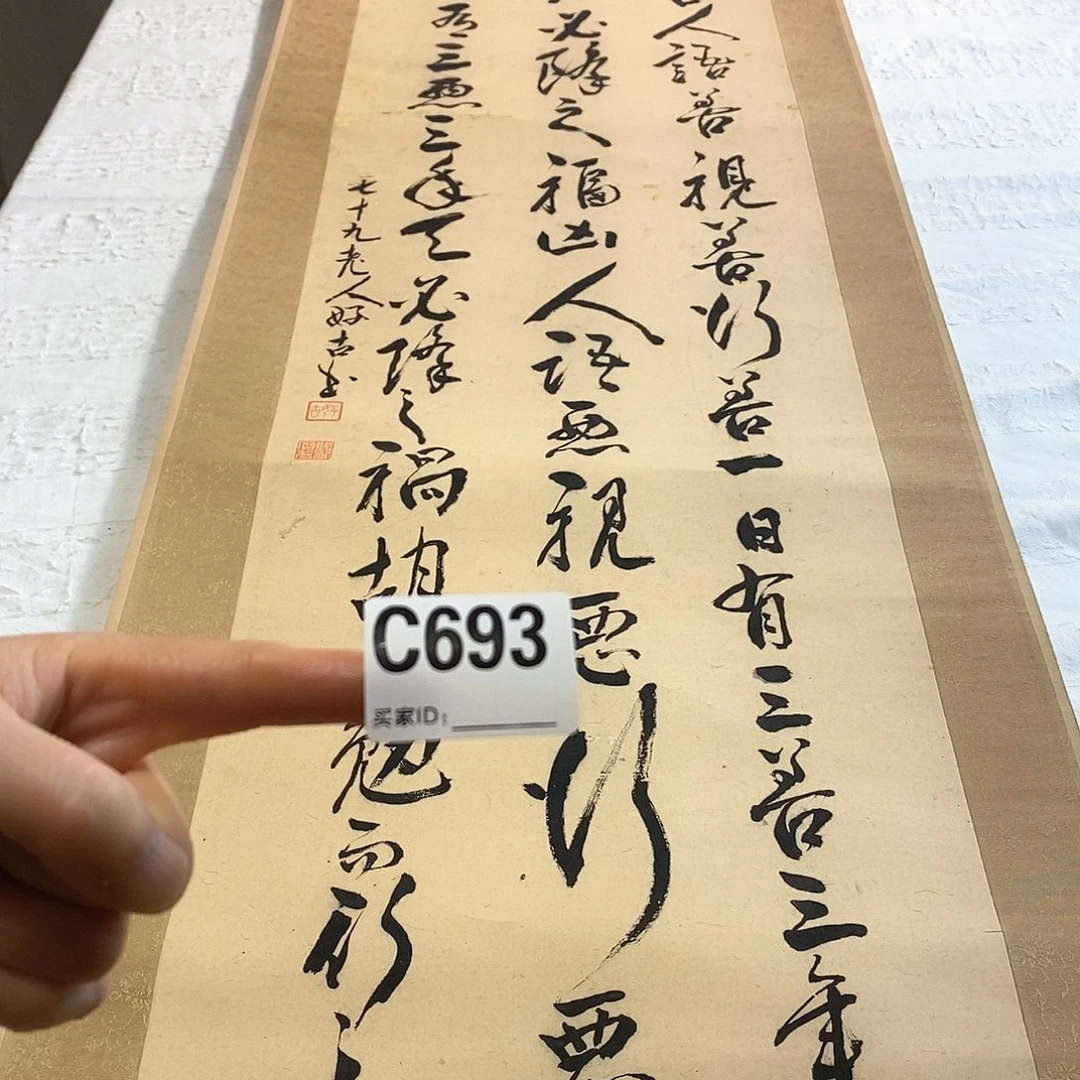 人語善視善行善一日有三善三年
必降之福凶人語悪視悪行悪
有三悪三年天必降之禍胡勉而行之
七十九老人好古書
好古
C693
买家ID：